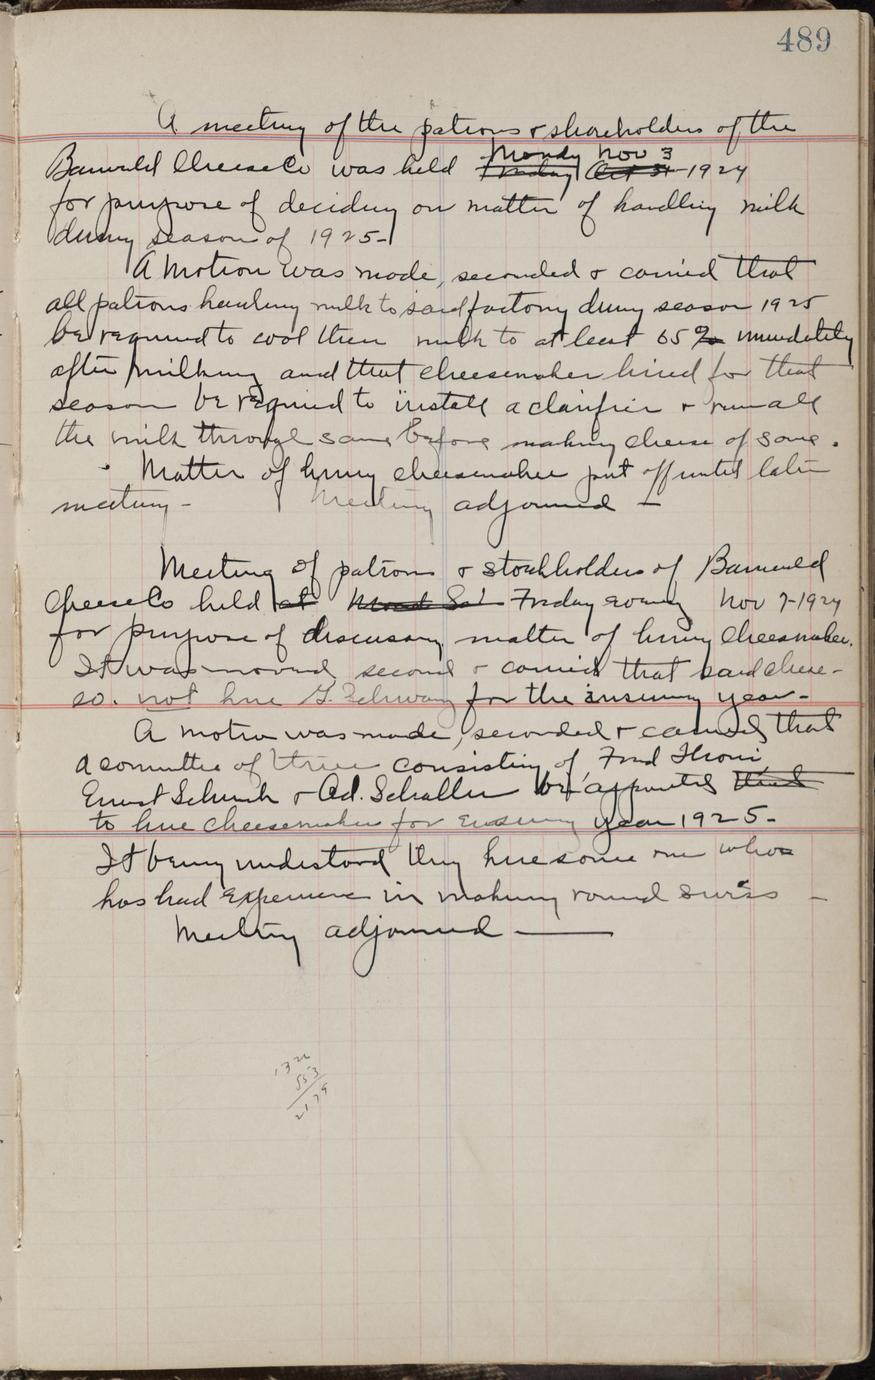 489
A meeting of the patrons & shareholders of the
Monday Nov 3
Barneveld Cheese Co was held Friday Oct 31 1924
for purpose of deciding on matter of handling milk
during season of 1925-
A Motion was made, seconded & carried that
all patrons hauling milk to said factory during season 1925
be required to cool their milk to at least 65% immediately
after milking and that cheesemaker hired for that
season be required to install a clarifier & run all
the milk through same before making cheese of same.
Matter of hiring cheesemaker put off until later
meeting - Meeting adjourned -
Meeting of patrons & stockholders of Barneveld
Cheese Co held at Friday evening Nov 7-1924
for purpose of discussing matter of hiring cheesemaker.
It was moved second & carried that said cheese-
co. not hire G. for the ensuing year-
A motion was made, seconded & carried that
a committee of three consisting of Fred Thoni,
Ernest & Ad. Schaller be appointed that
to hire cheesemaker for ensuing year 1925-
It being understood they hire some one who
has had experience in making round swiss -
Meeting adjourned -
553